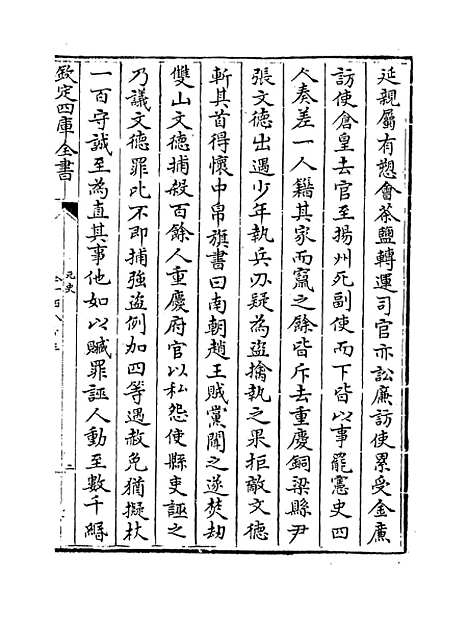 延親屬有愬會茶鹽轉運司官亦訟廉訪使累受金廉
訪使倉皇去官至揚州死副使而下皆以事罷憲史四
人奏差一人籍其家而竄之餘皆斥去重慶銅梁縣尹
張文徳出遇少年執兵刃疑為盗擒執之果拒敵文徳
斬其首得懷中帛旗書曰南朝趙王賊黨聞之遂焚劫
雙山文徳捕殺百餘人重慶府官以私怨使縣吏誣之
乃議文徳罪比不即捕強盗例加四等遇赦免猶擬杖
一百守誠至為直其事他如以贓罪誣人動至數千緡
欽定四庫全書
元史
二